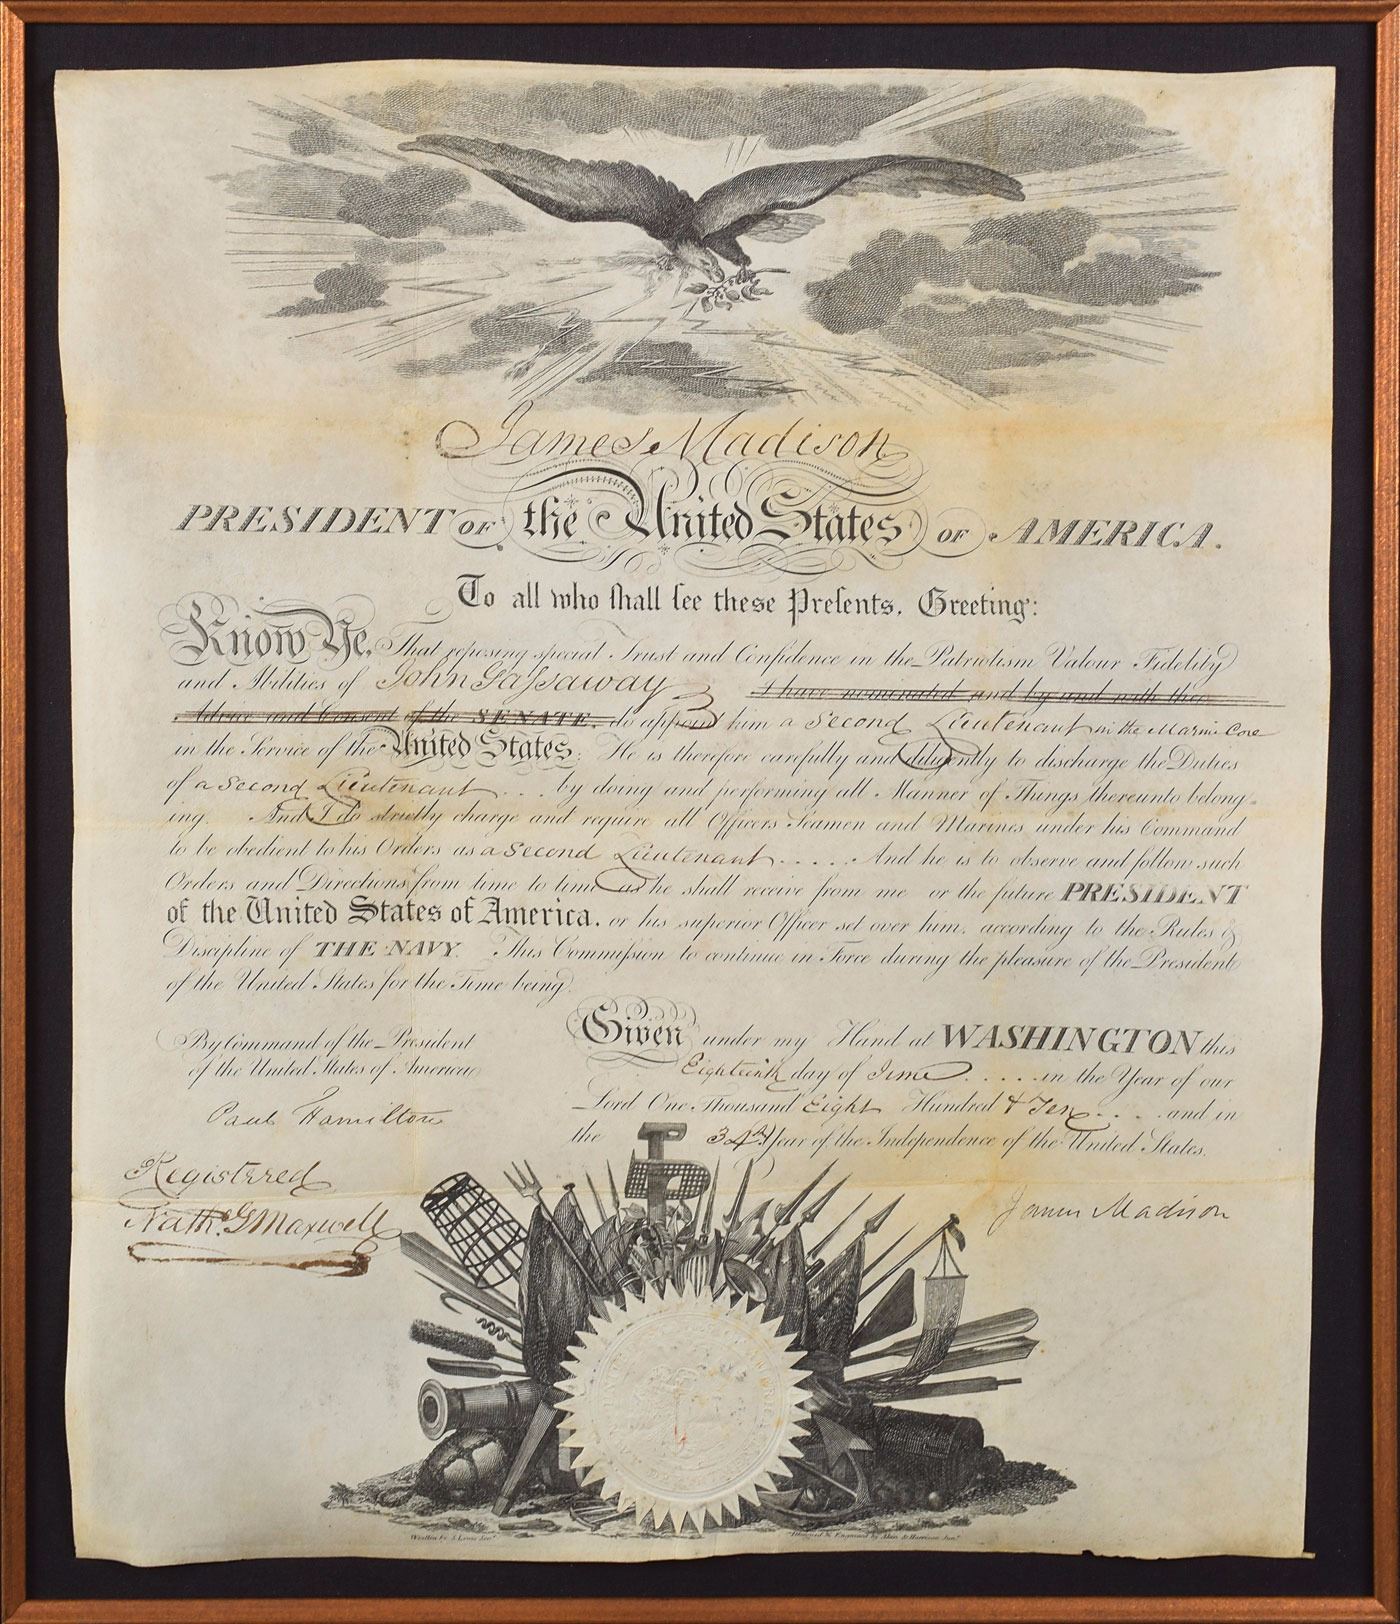 James Madison
PRESIDENT OF the United States OF AMERICA.
To all who ſhall ſee theſe Preſents, Greeting:
Know Ye, That reposing special Trust and Confidence in the Patriotism Valour Fidelity
and Abilities of John Gaſsaway I have nominated and by and with the
Advice and Consent of the SENATE, do appoint him a Second Lieutenant in the Marine Core
in the Service of the United States: He is therefore carefully and diligently to discharge the Duties
of a Second Lieutenant . . . by doing and performing all Manner of Things thereunto belong-
ing. And I do strictly charge and require all Officers Seamen and Marines under his Command
to be obedient to his Orders as a Second Lieutenant . . . . . And he is to observe and follow such
Orders and Directions from time to time as he shall receive from me or the future PRESIDENT
of the United States of America, or his superior Officer set over him, according to the Rules &
Discipline of THE NAVY. This Commiſsion to continue in Force during the pleasure of the President
of the United States for the Time being.
By Command of the President
of the United States of America
Paul Hamilton
Registered
Nath. G Maxwell
Given under my Hand at WASHINGTON this
Eighteenth day of June . . . . . in the Year of our
Lord One Thousand Eight Hundred & Ten . . . . and in
the 34th Year of the Independence of the United States.
James Madison
Written by
Designed & Engraved by